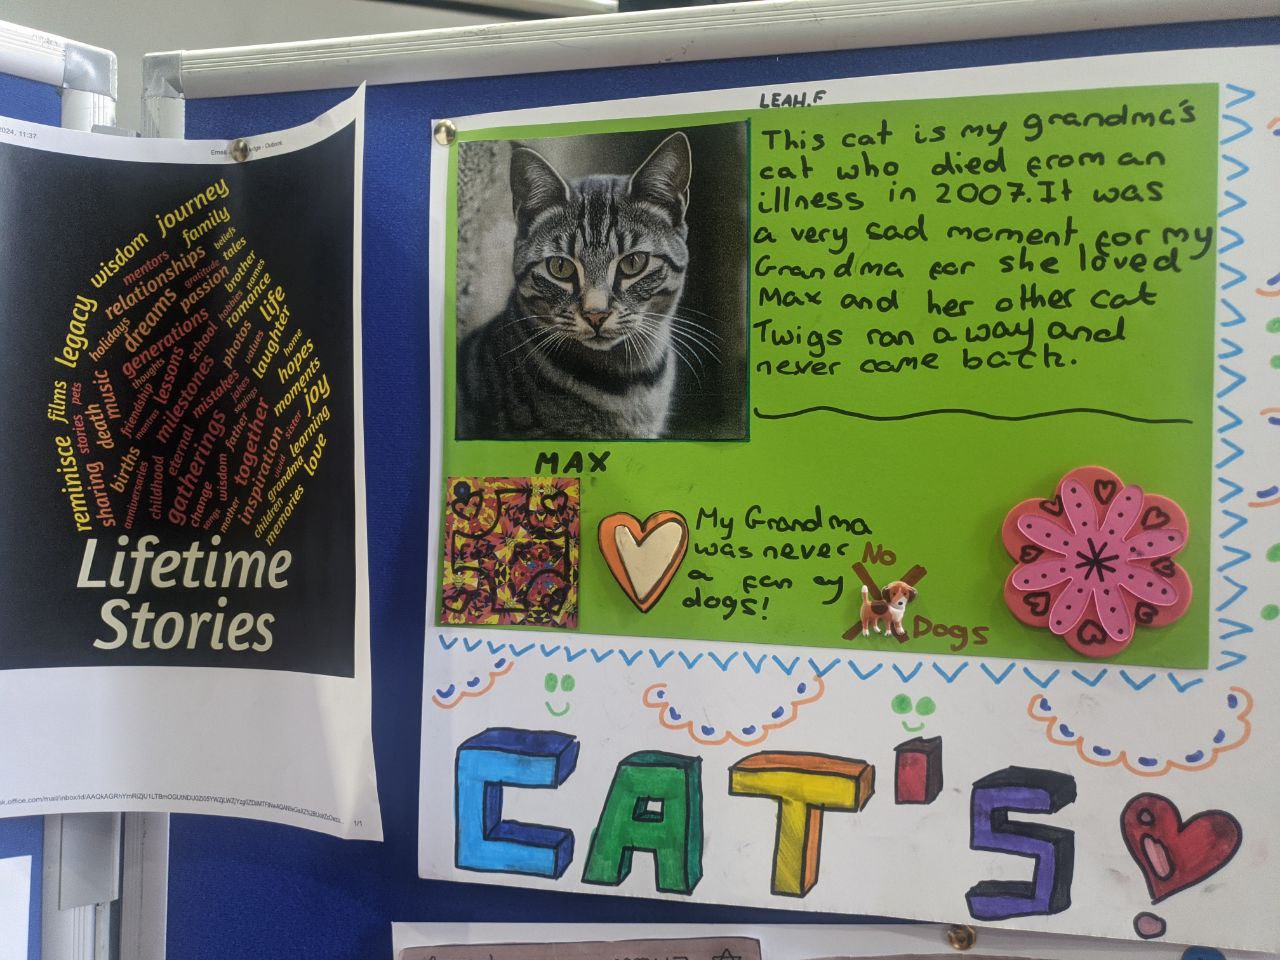 2024, 11:37
Outlook
journey
wisdom
family
legacy
mentors
beliefs
relationships
gratitude
tales
holidays
dreams
passion
brother
names
generations
hobbies
romance
films
thoughts
lessons
school
photos
life
reminisce
stories
pets
music
friendship
milestones
values
laughter
home
sharing
death
births
mistakes
jokes
hopes
anniversaries
childhood
eternal
gatherings
father
sayings
together
moments
joy
change
wisdom
inspiration
sister
learning
songs
mother
grandma
love
children
memories
Lifetime
Stories
1/1
LEAH.F
This cat is my grandma's
cat who died from an
illness in 2007. It was
a very sad moment for my
Grandma for she loved
Max and her other cat
Twigs ran away and
never came back.
MAX
My Grandma
was never
a fan of
dogs!
No
Dogs
CAT'S